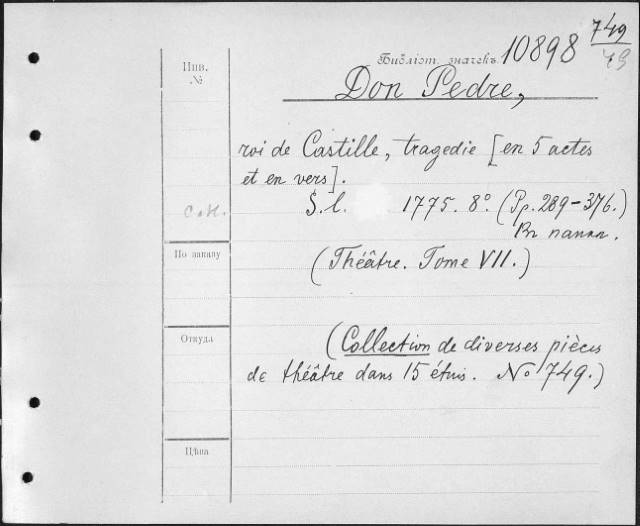 749
43
Библіот. значекъ 10898
Инв.
№
Don Pedre,
roi de Castille, tragedie [en 5 actes
et en vers].
S.l. 1775. 8º. (Pp. 289-376.)
Вл папки.
(Théâtre. Tome VII.)
По шкапу
Откуда
(Collection de diverses pièces
de théâtre dans 15 étuis. No 749.)
Цѣна